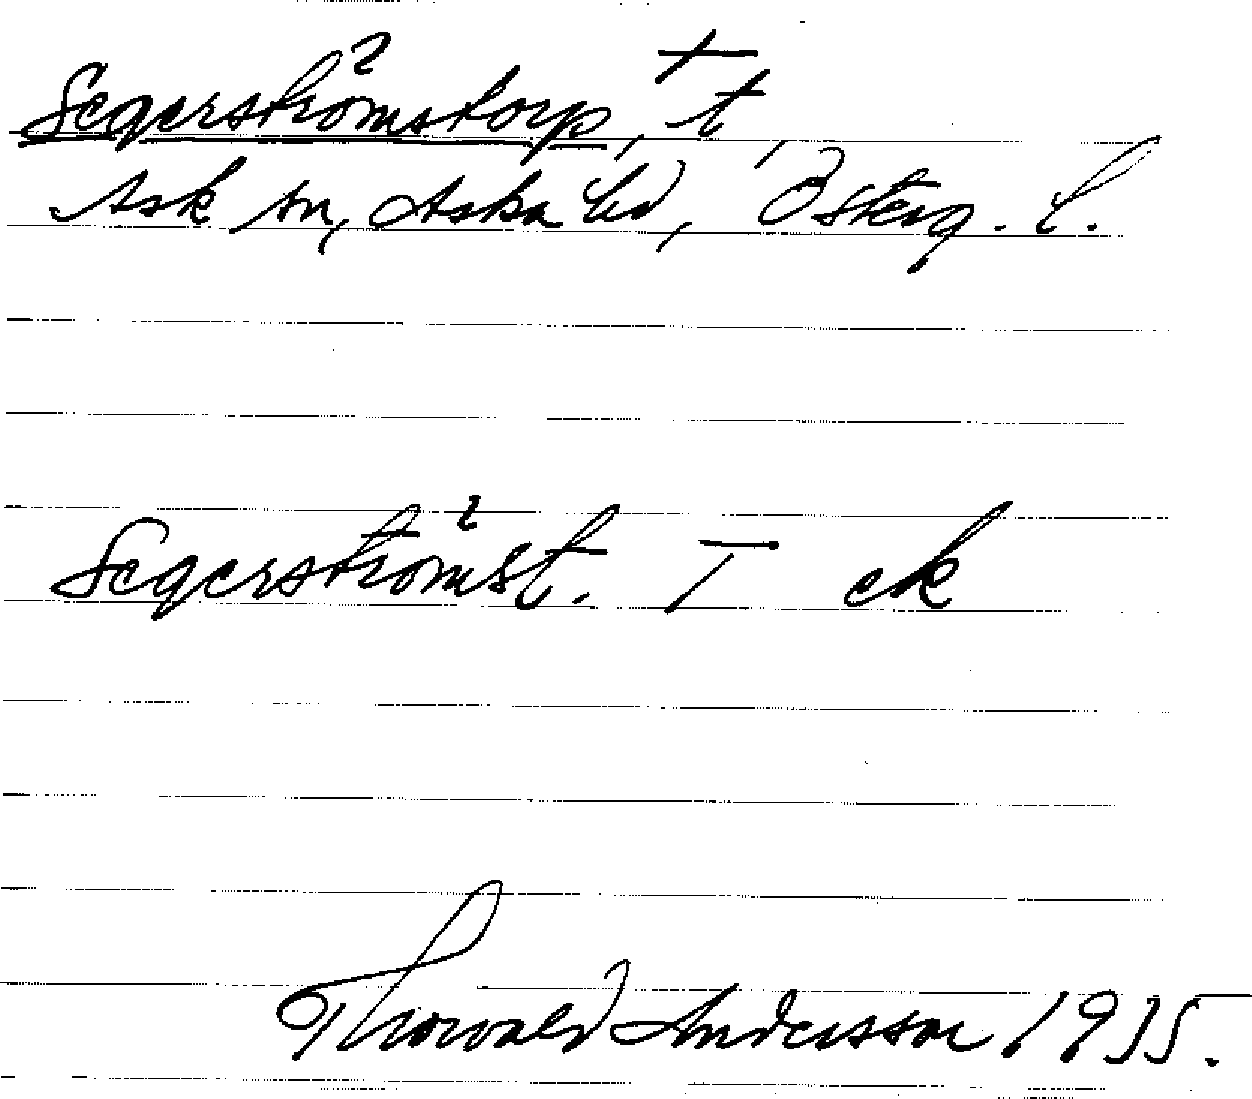 Segerströmstorp, † t,
Ask sn, Aska hd, Österg. l.
Segerströmst. T ek
Thorvald Andersson 1935.